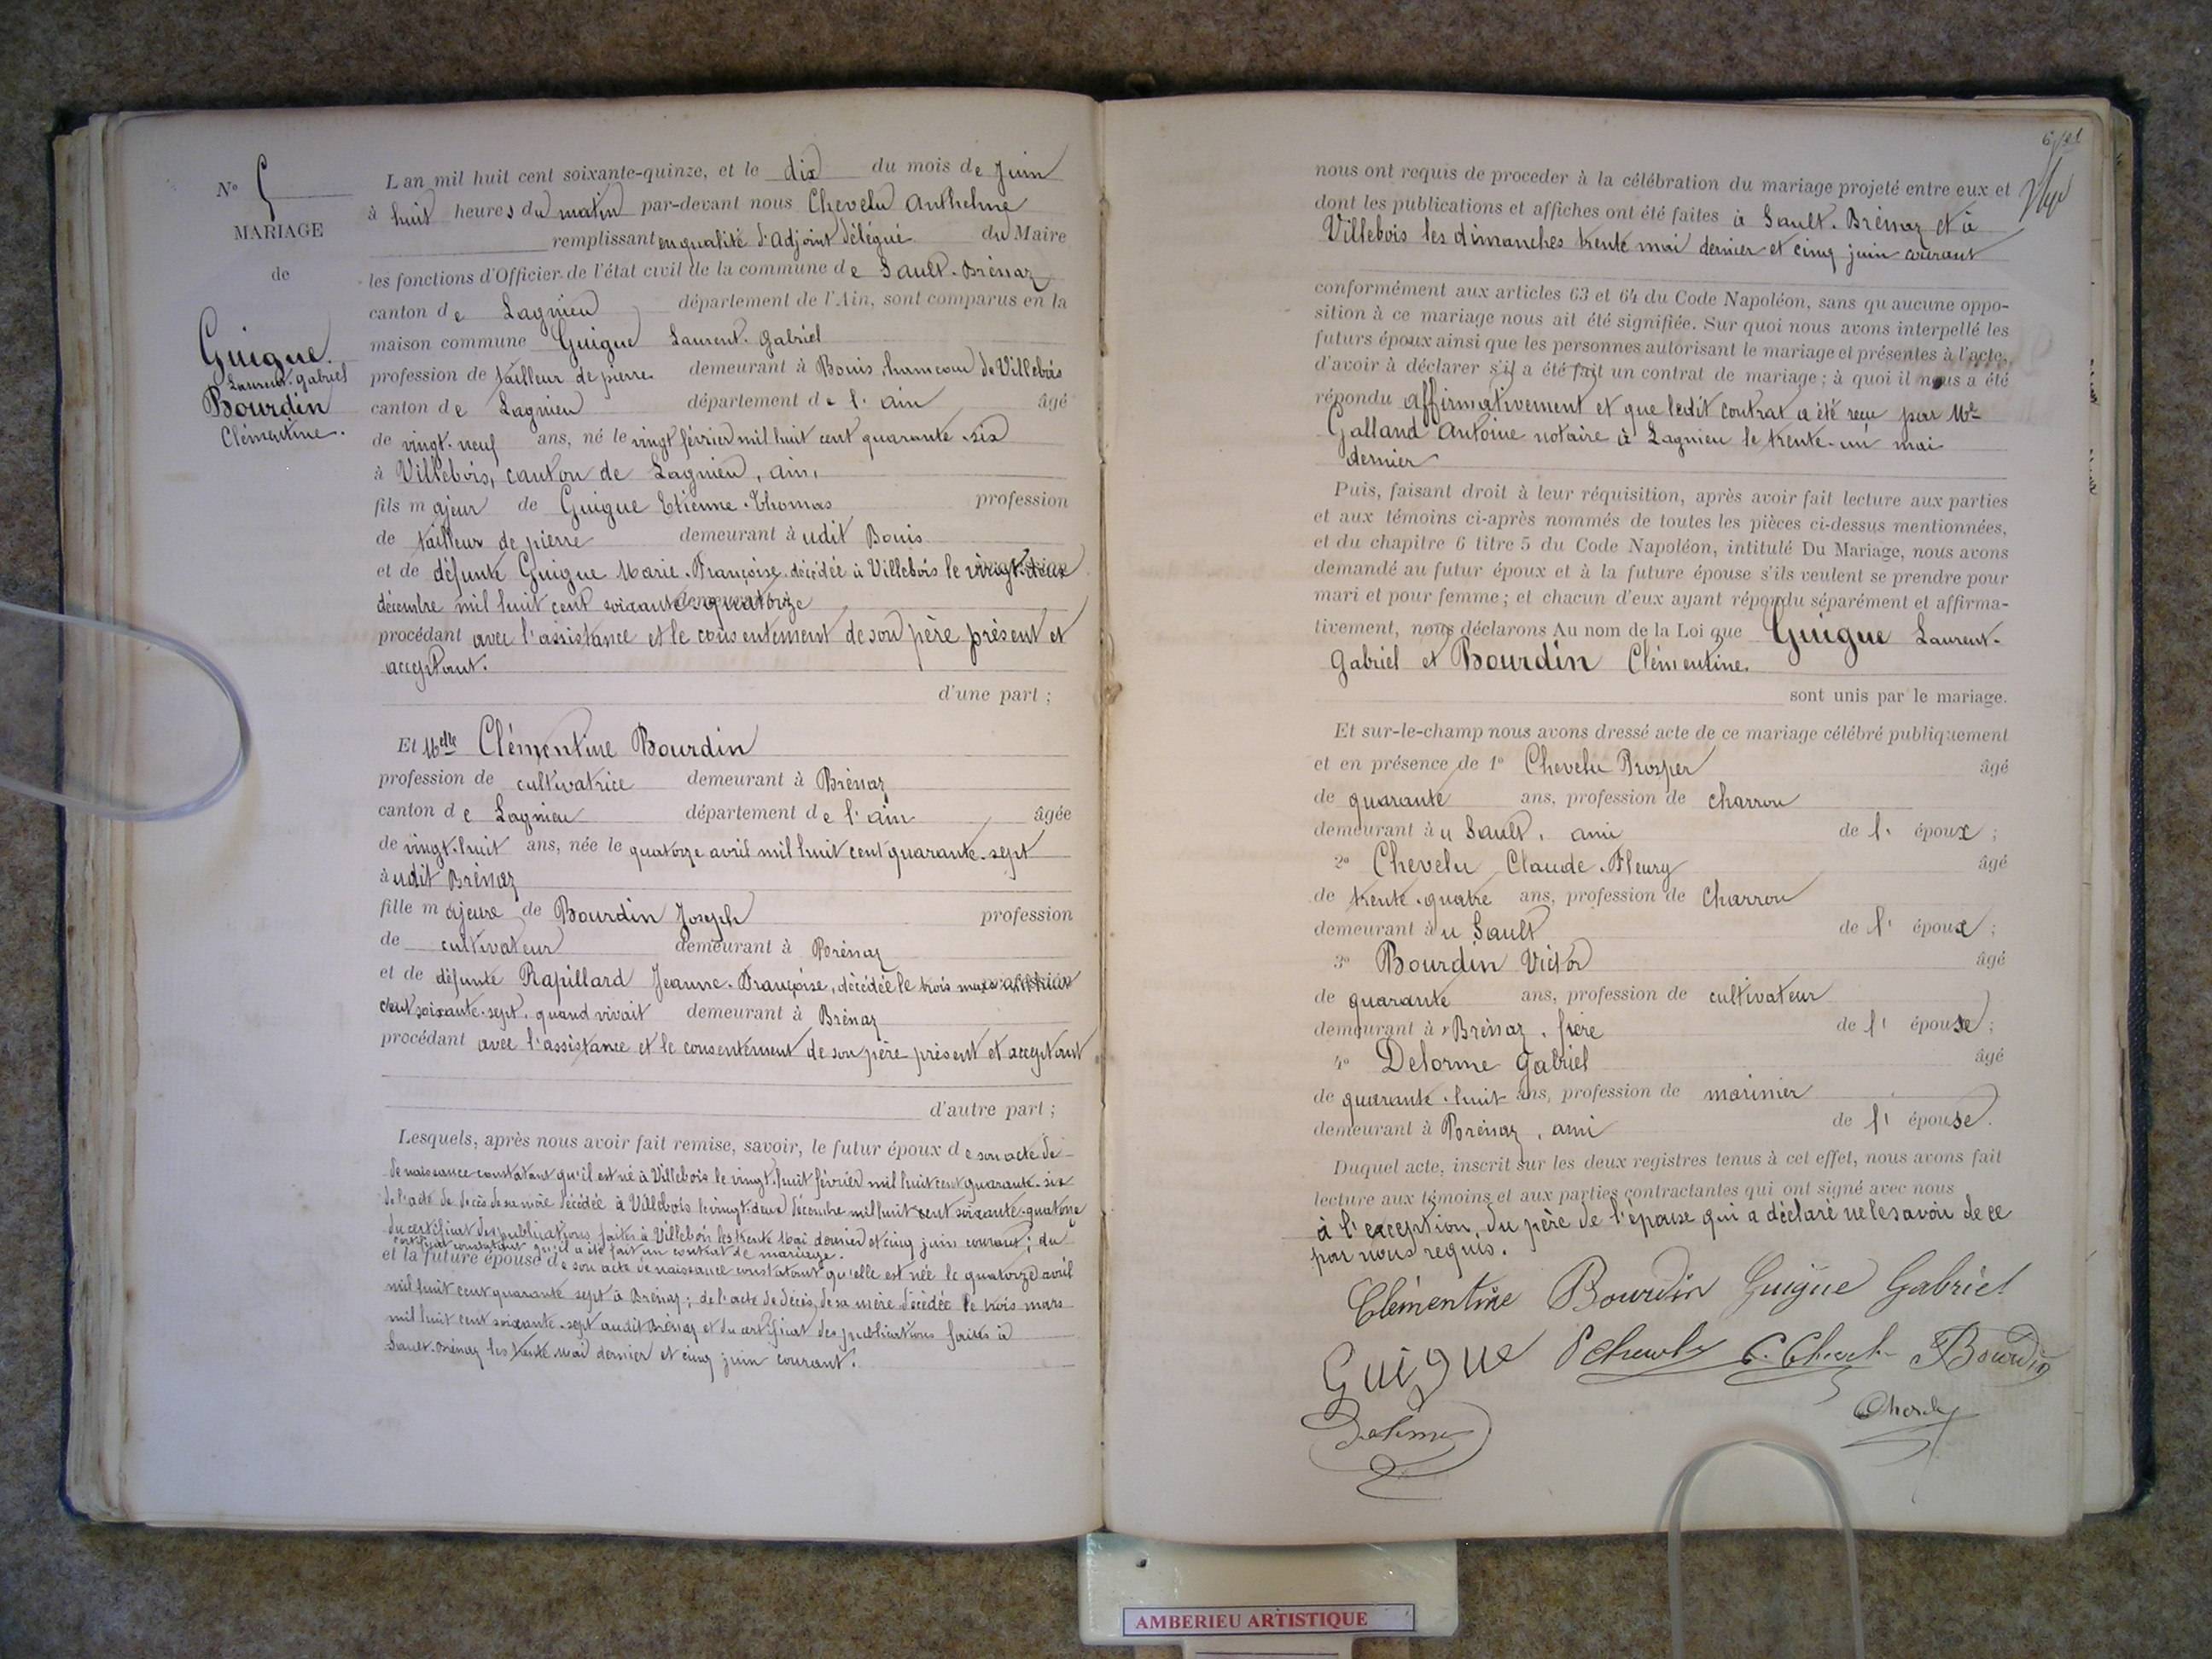 N° 5
MARIAGE
de
Guigue
Laurent-Gabriel
Bourdin
Clémentine.
L'an mil huit cent soixante-quinze, et le dix du mois de Juin
à huit heures du matin par-devant nous Chevelu Anthelme
remplissant en qualité d'adjoint délégué du Maire
les fonctions d'Officier de l'état civil de la commune de Sault-Brénaz
canton de Lagnieu département de l'Ain, sont comparus en la
maison commune Guigue Laurent-Gabriel
profession de tailleur de pierre demeurant à Bouis, hameau de Villebois
canton de Lagnieu département de l'ain âgé
de vingt-neuf ans, né le vingt février mil huit cent quarante-six
à Villebois, canton de Lagnieu, ain,
fils majeur de Guigue Etienne-Thomas profession
de tailleur de pierre demeurant à udit Bouis
et de défunte Guigue Marie-Françoise décédée à Villebois le vingt-deux
décembre mil huit cent soixante-quatorze
procédant avec l'assistance et le consentement de son père présent et
acceptant.
d'une part ;
Et Melle Clémentine Bourdin
profession de cultivatrice demeurant à Brénaz
canton de Lagnieu département de l'ain âgée
de vingt-huit ans, née le quatorze avril mil huit cent quarante-sept
à udit Brénaz
fille majeure de Bourdin Joseph profession
de cultivateur demeurant à Brénaz
et de défunte Rapillard Jeanne-Françoise, décédée le trois mars mil huit
cent soixante-sept, quand vivait demeurant à Brénaz
procédant avec l'assistance et le consentement de son père présent et acceptant
d'autre part ;
Lesquels, après nous avoir fait remise, savoir, le futur époux de son acte de
de naissance constatant qu'il est né à Villebois le vingt-huit février mil huit cent quarante-six
de l'acte de décès de sa mère décédée à Villebois le vingt-deux décembre mil huit cent soixante-quatorze
du certificat des publications faites à Villebois les trente Mai dernier et cinq juin courant ; du
certificat constatant qu'il a été fait un contrat de mariage.
et la future épouse de son acte de naissance constatant qu'elle est née le quatorze avril
mil huit cent quarante sept à Brénaz ; de l'acte de décès de sa mère décédée le trois mars
mil huit cent soixante-sept audit Brénaz et du certificat des publications faites à
Sault-Brénaz les trente Mai dernier et cinq juin courant.
nous ont requis de procéder à la célébration du mariage projeté entre eux et
dont les publications et affiches ont été faites à Sault-Brénaz et à
Villebois les dimanches trente mai dernier et cinq juin courant
conformément aux articles 63 et 64 du Code Napoléon, sans qu'aucune oppo-
sition à ce mariage nous ait été signifiée. Sur quoi nous avons interpellé les
futurs époux ainsi que les personnes autorisant le mariage et présentes à l'acte,
d'avoir à déclarer s'il a été fait un contrat de mariage ; à quoi il nous a été
répondu affirmativement et que ledit contrat a été reçu par Me
Galland Antoine notaire à Lagnieu le trente-un mai
dernier
Puis, faisant droit à leur réquisition, après avoir fait lecture aux parties
et aux témoins ci-après nommés de toutes les pièces ci-dessus mentionnées,
et du chapitre 6 titre 5 du Code Napoléon, intitulé Du Mariage, nous avons
demandé au futur époux et à la future épouse s'ils veulent se prendre pour
mari et pour femme ; et chacun d'eux ayant répondu séparément et affirma-
tivement, nous déclarons Au nom de la Loi que Guigue Laurent-
Gabriel et Bourdin Clémentine.
sont unis par le mariage.
Et sur-le-champ nous avons dressé acte de ce mariage célébré publiquement
et en présence de 1° Chevelu Prosper âgé
de quarante ans, profession de charron
demeurant à u Sault, ami de l' époux ;
2° Chevelu Claude-Fleury âgé
de trente-quatre ans, profession de charron
demeurant à u Sault de l' époux ;
3° Bourdin Victor âgé
de quarante ans, profession de cultivateur
demeurant à Brénaz, frère de l' épouse ;
4° Delorme Gabriel âgé
de quarante-huit ans, profession de marinier
demeurant à Brénaz, ami de l' épouse.
Duquel acte, inscrit sur les deux registres tenus à cet effet, nous avons fait
lecture aux témoins et aux parties contractantes qui ont signé avec nous
à l'exception du père de l'épouse qui a déclaré ne le savoir de ce
par nous requis.
Clémentine Bourdin Guigue Gabriel
Guigue P Chevelu C. Chevelu Bourdin
AMBERIEU ARTISTIQUE